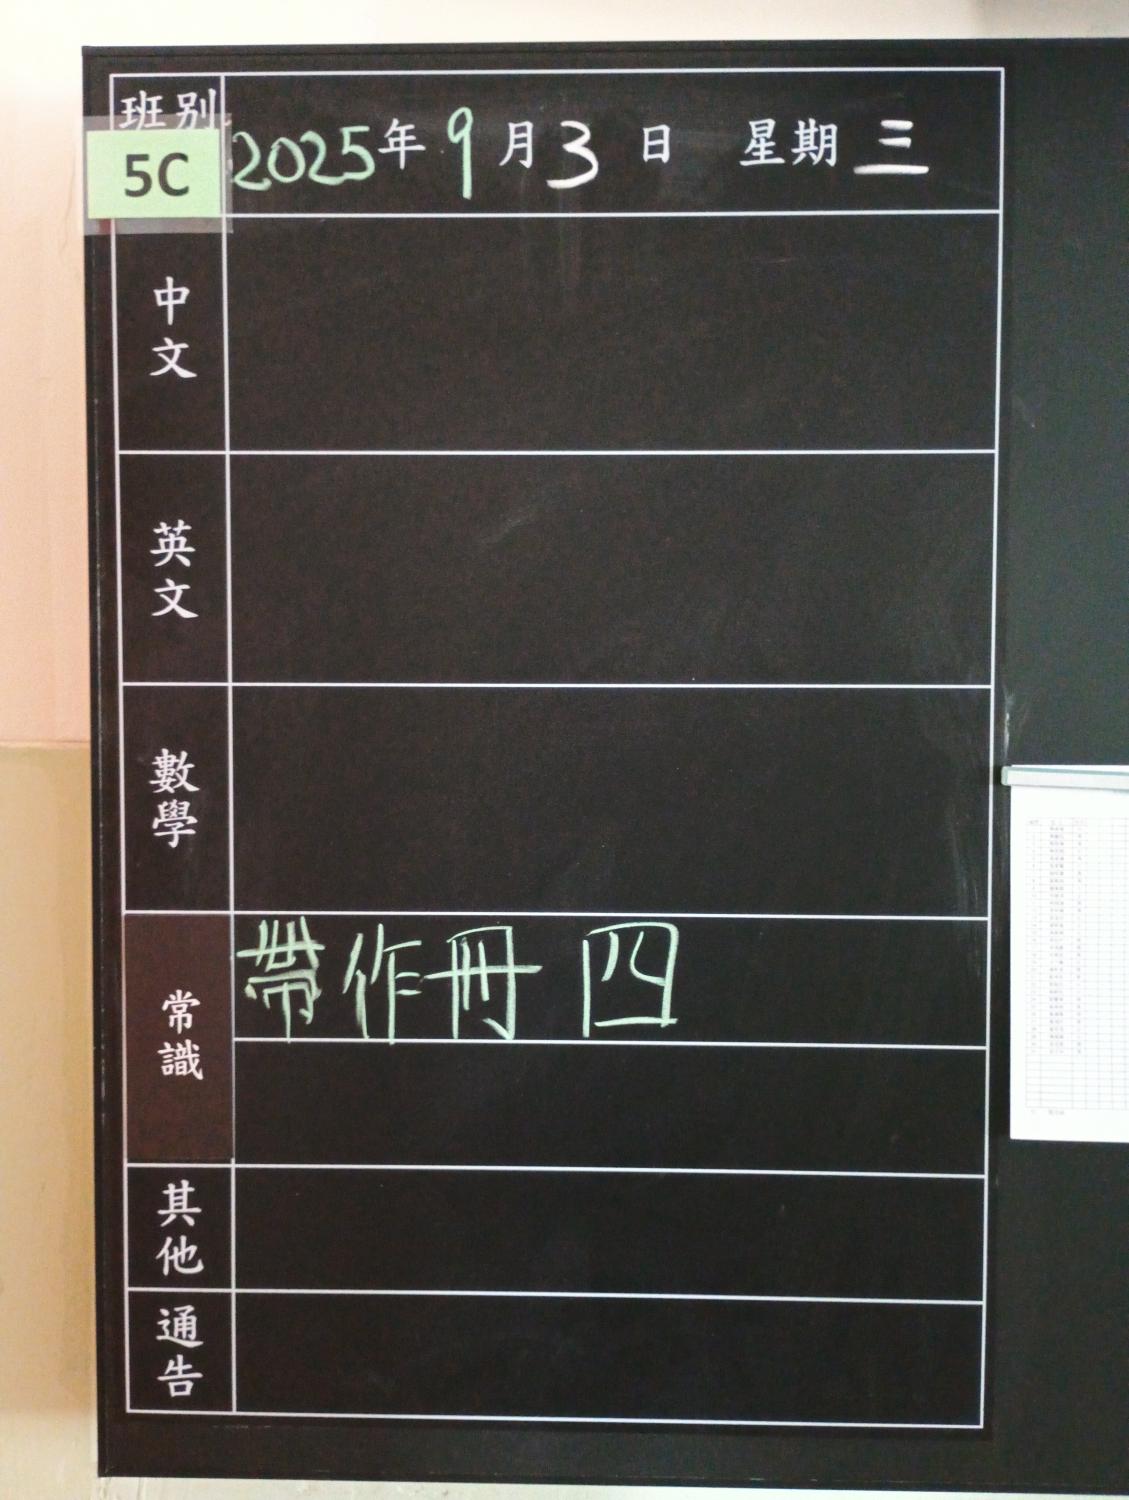 班別
5C
2025年9月3日 星期三
中文
英文
數學
常識
帶作冊 四
其他
通告